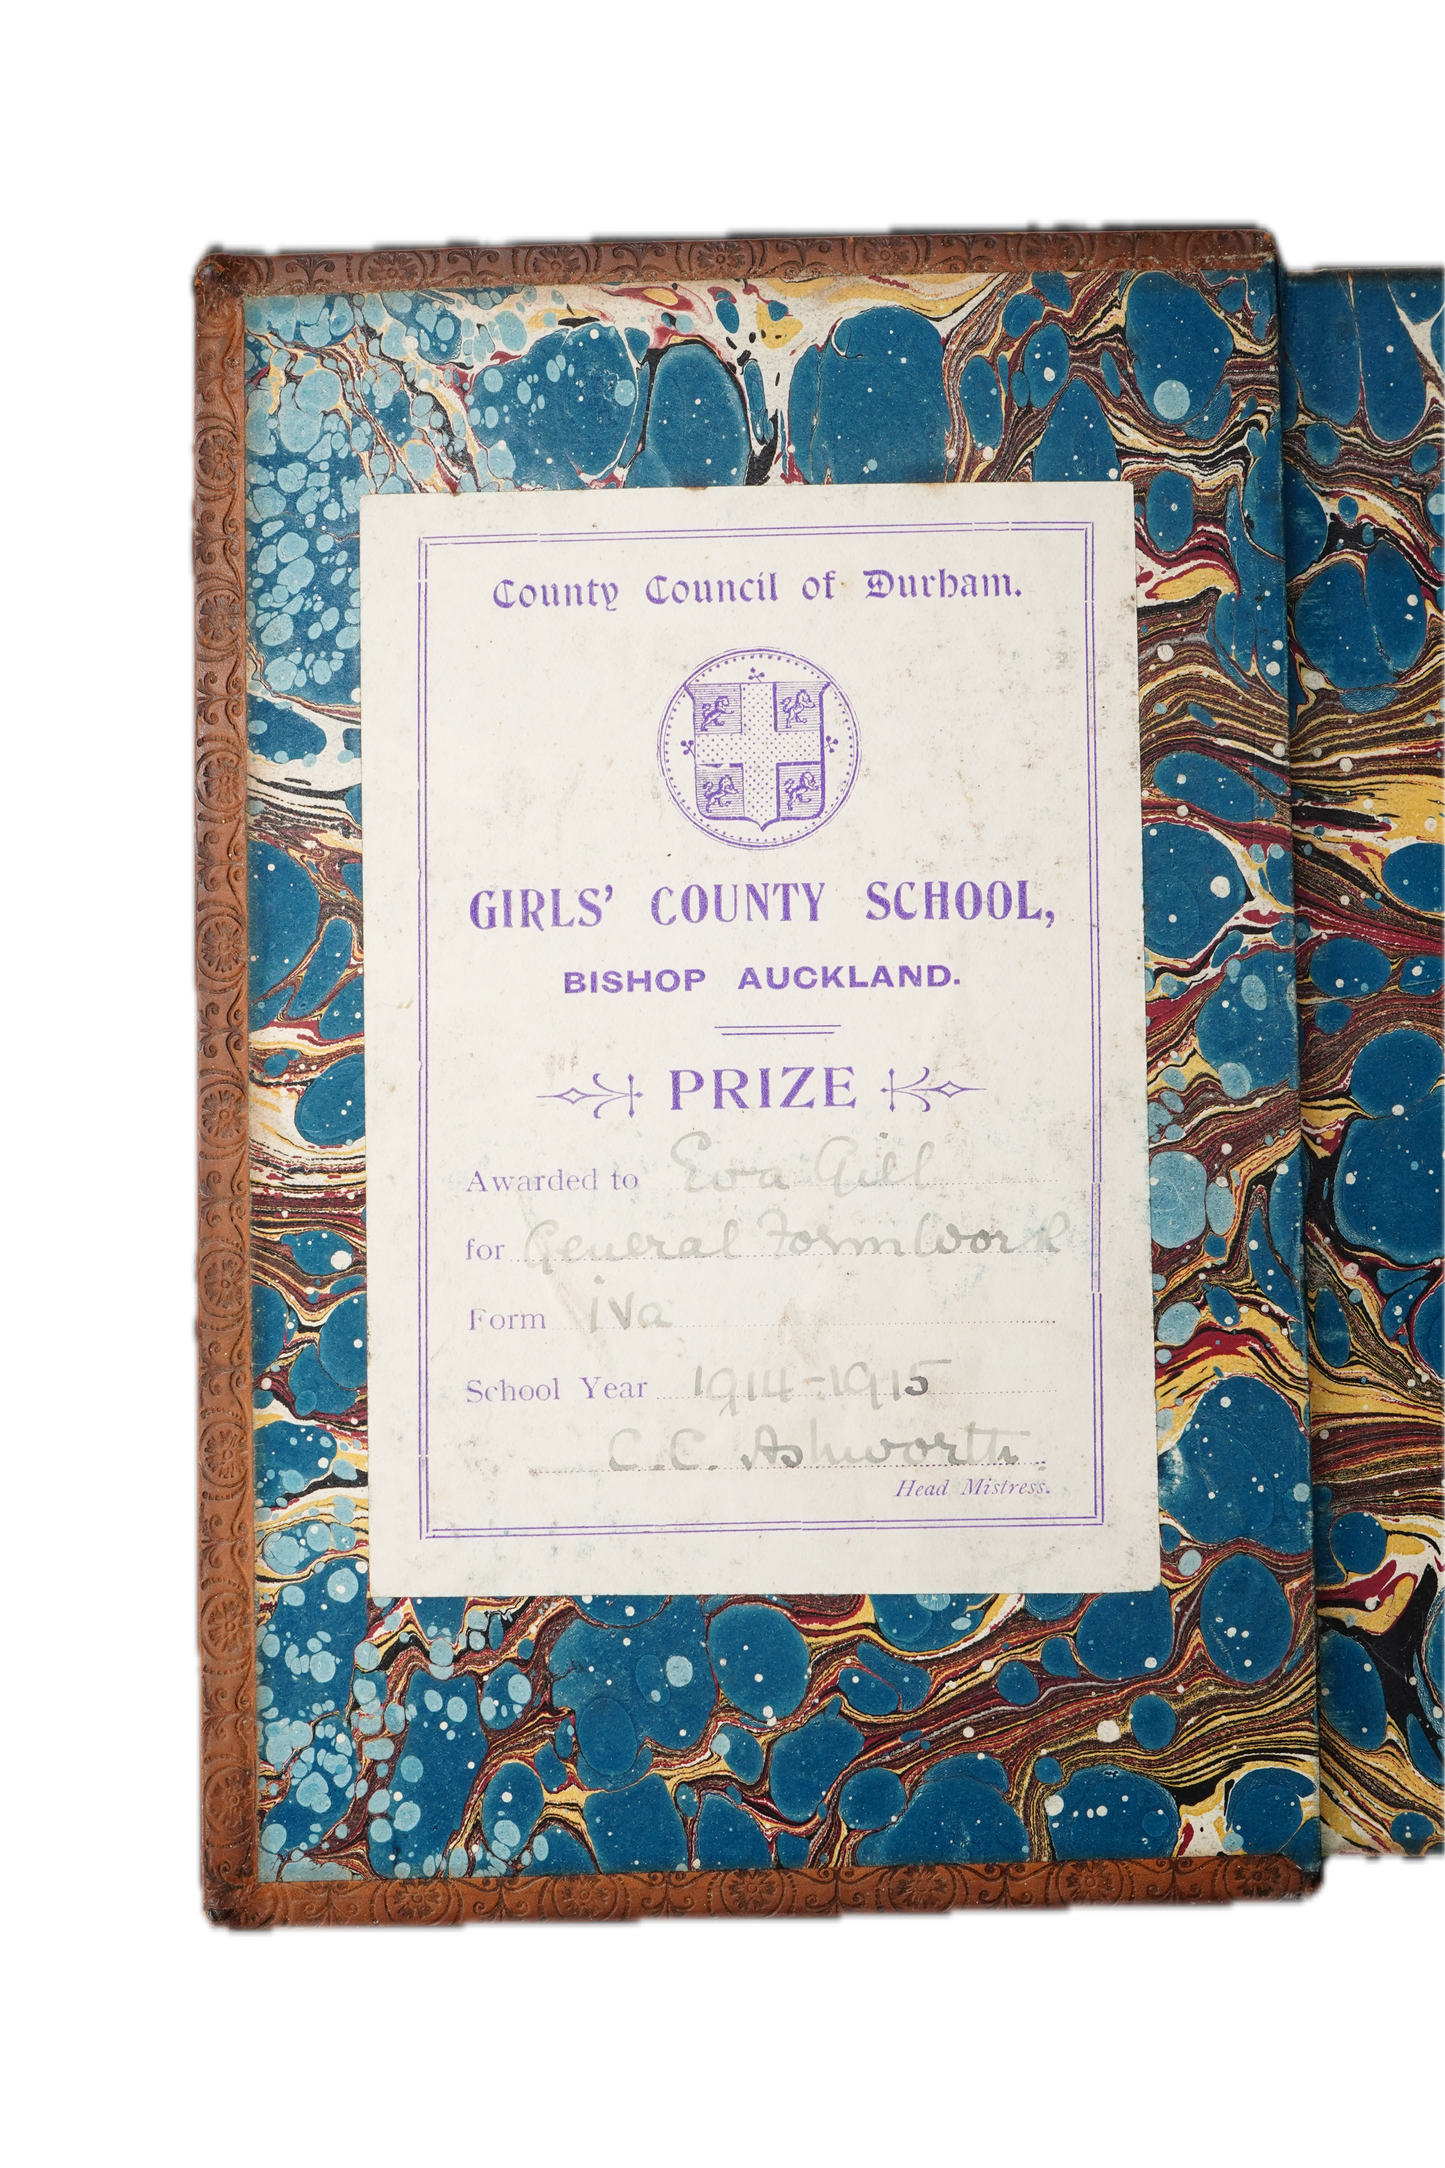 County Council of Durham.
GIRLS' COUNTY SCHOOL,
BISHOP AUCKLAND.
PRIZE
Awarded to Eva Gill
for General Form Work
Form iva
School Year 1914-1915
C.C. Ashworth
Head Mistress.